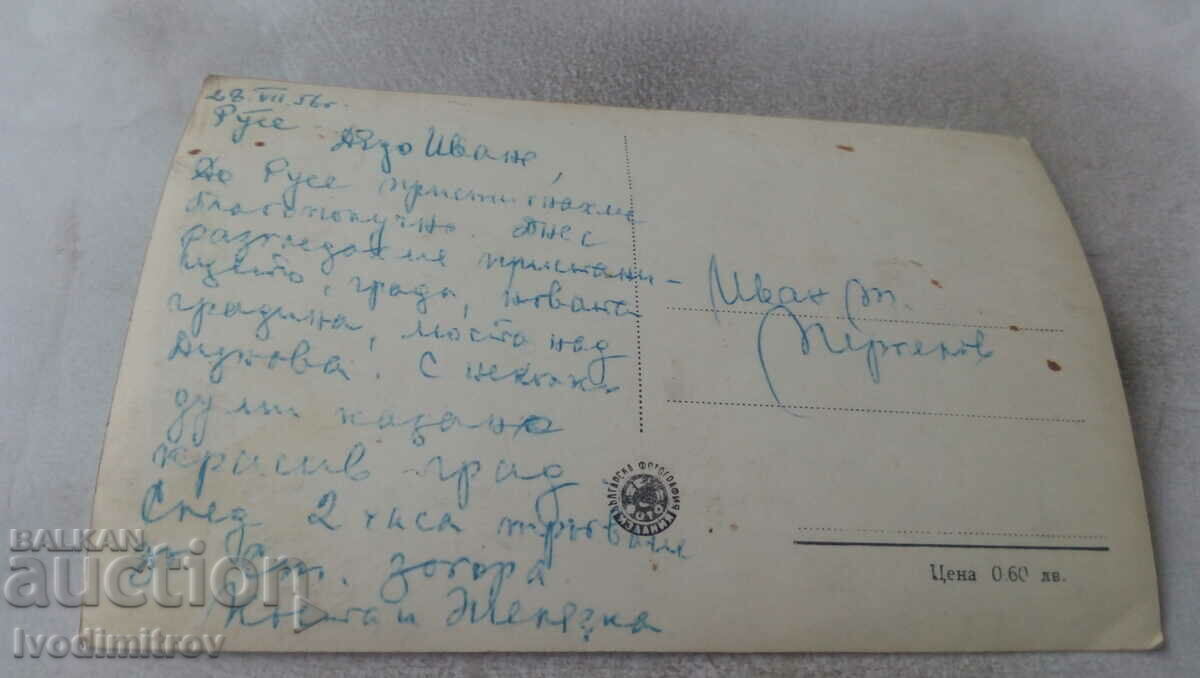 28.VII.56г.
Русе
Дядо Иване,
До Русе пристигнахме
благополучно. Днес
разгледахме пристани-
щето, града, новата
градина, моста над
Дунава. С няколко
думи казано
красив град
След 2 часа тръгваме
за Ст. Загора
и Желязка
Иван
БЪЛГАРСКА ФОТОГРАФИЯ
ФОТО
ИЗДАНИЯ
Цена 0.60 лв.
BALKAN
auction
Ivodimitrov